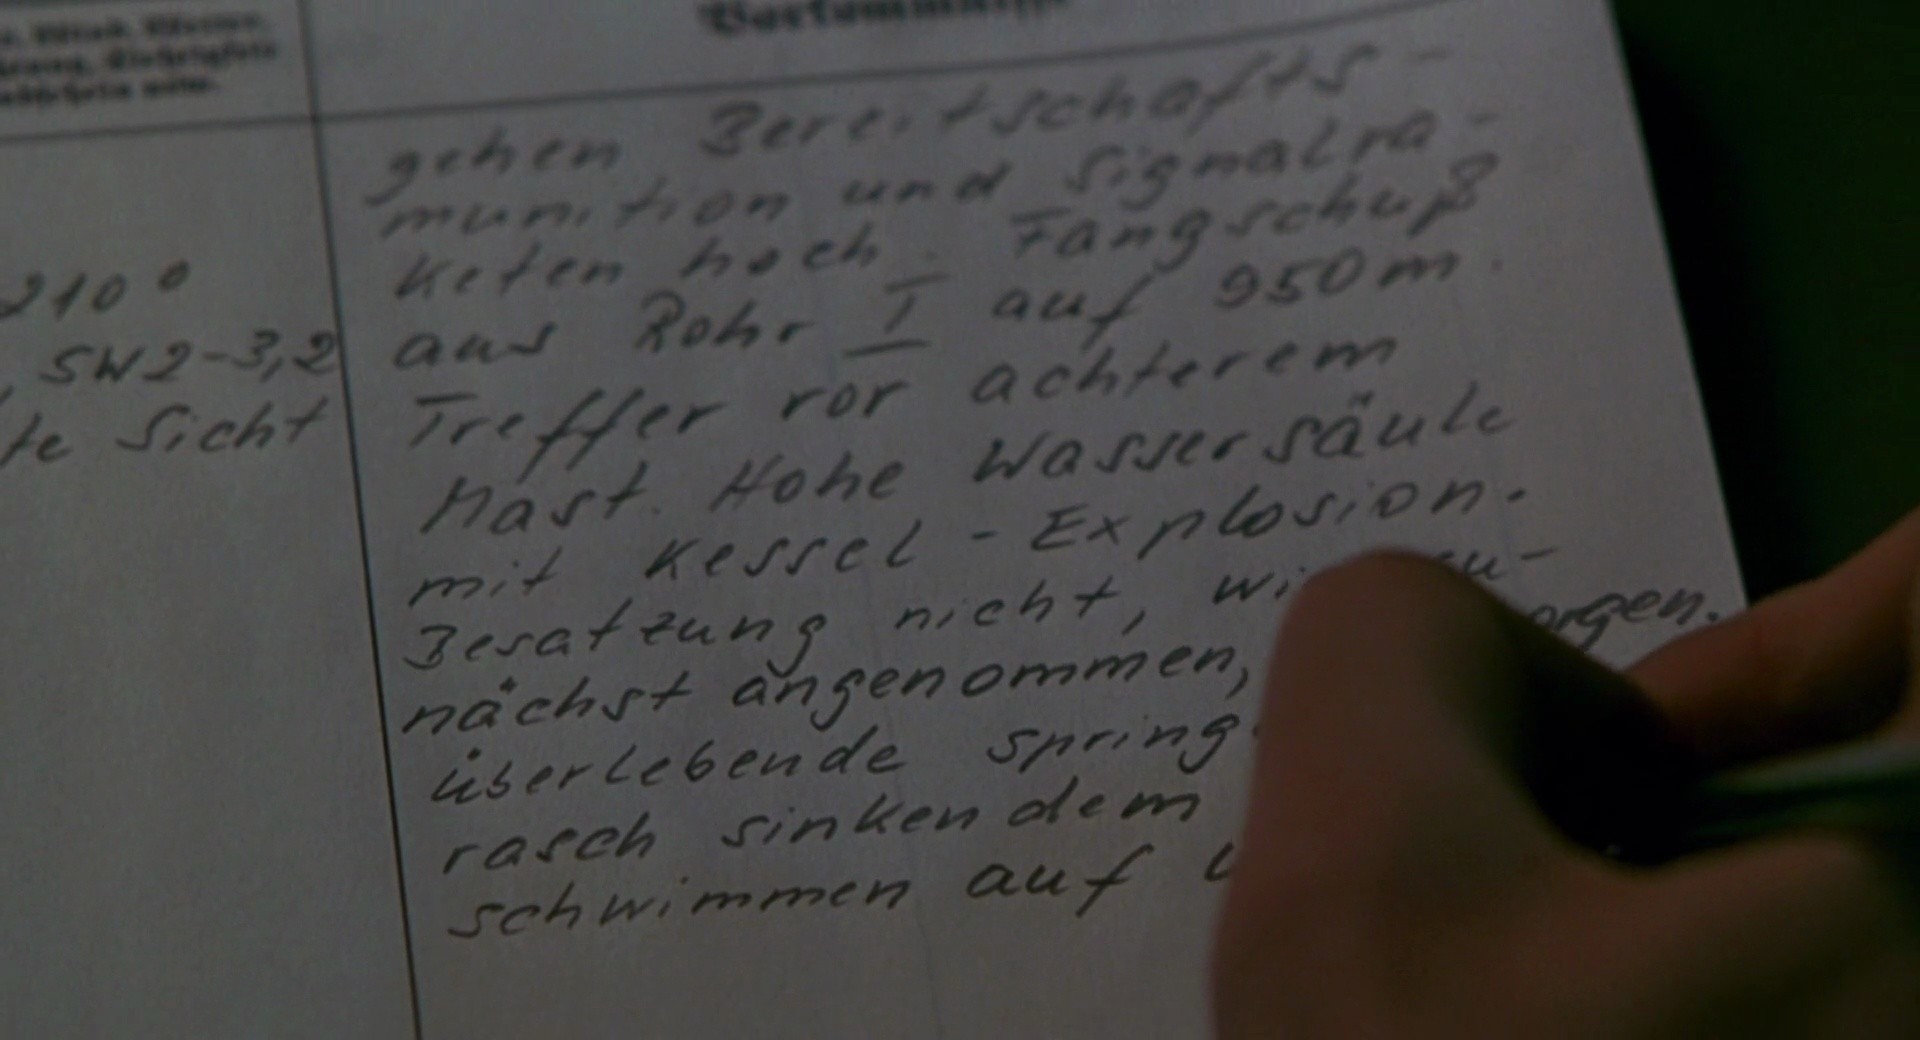 Vorkommnisse
gehen Bereitschafts-
munition und Signalra-
keten hoch. Fangschuß
210°
aus Rohr I auf 950m.
, SW2-3,2
Treffer vor achterem
te Sicht
Mast. Hohe Wassersäule
mit Kessel-Explosion.
Besatzung nicht, wi zu-
nächst angenommen, orgen.
überlebende spring
rasch sinkendem
schwimmen auf